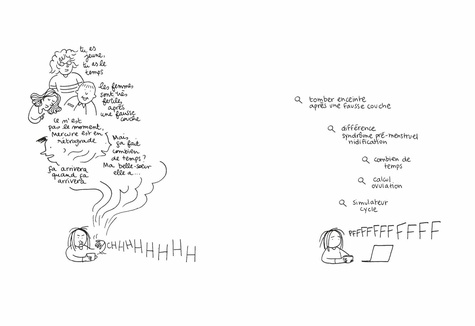 tu es
jeune,
tu as le
temps
les femmes
sont très
fertiles
après
une fausse
couche
ce n'est
pas le moment,
Mercure est en
rétrograde
Mais,
ça fait
combien
de temps?
Ma belle-sœur
elle a...
ça arrivera
quand ça
arrivera
CHHHHHHHH
tomber enceinte
après une fausse couche
différence
syndrome pré-menstruel
nidification
combien de
temps
calcul
ovulation
simulateur
cycle
FFFFFFFFFFFF